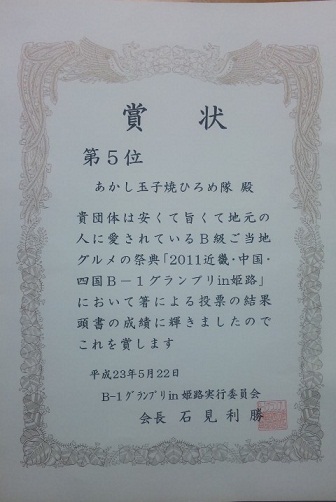 賞状
第5位
あかし玉子焼ひろめ隊 殿
貴団体は安くて旨くて地元の
人に愛されているB級ご当地
グルメの祭典「2011近畿・中国・
四国B－1グランプリin姫路」
において箸による投票の結果
頭書の成績に輝きましたので
これを賞します
平成23年5月22日
B-1グランプリin姫路実行委員会
会長 石見利勝